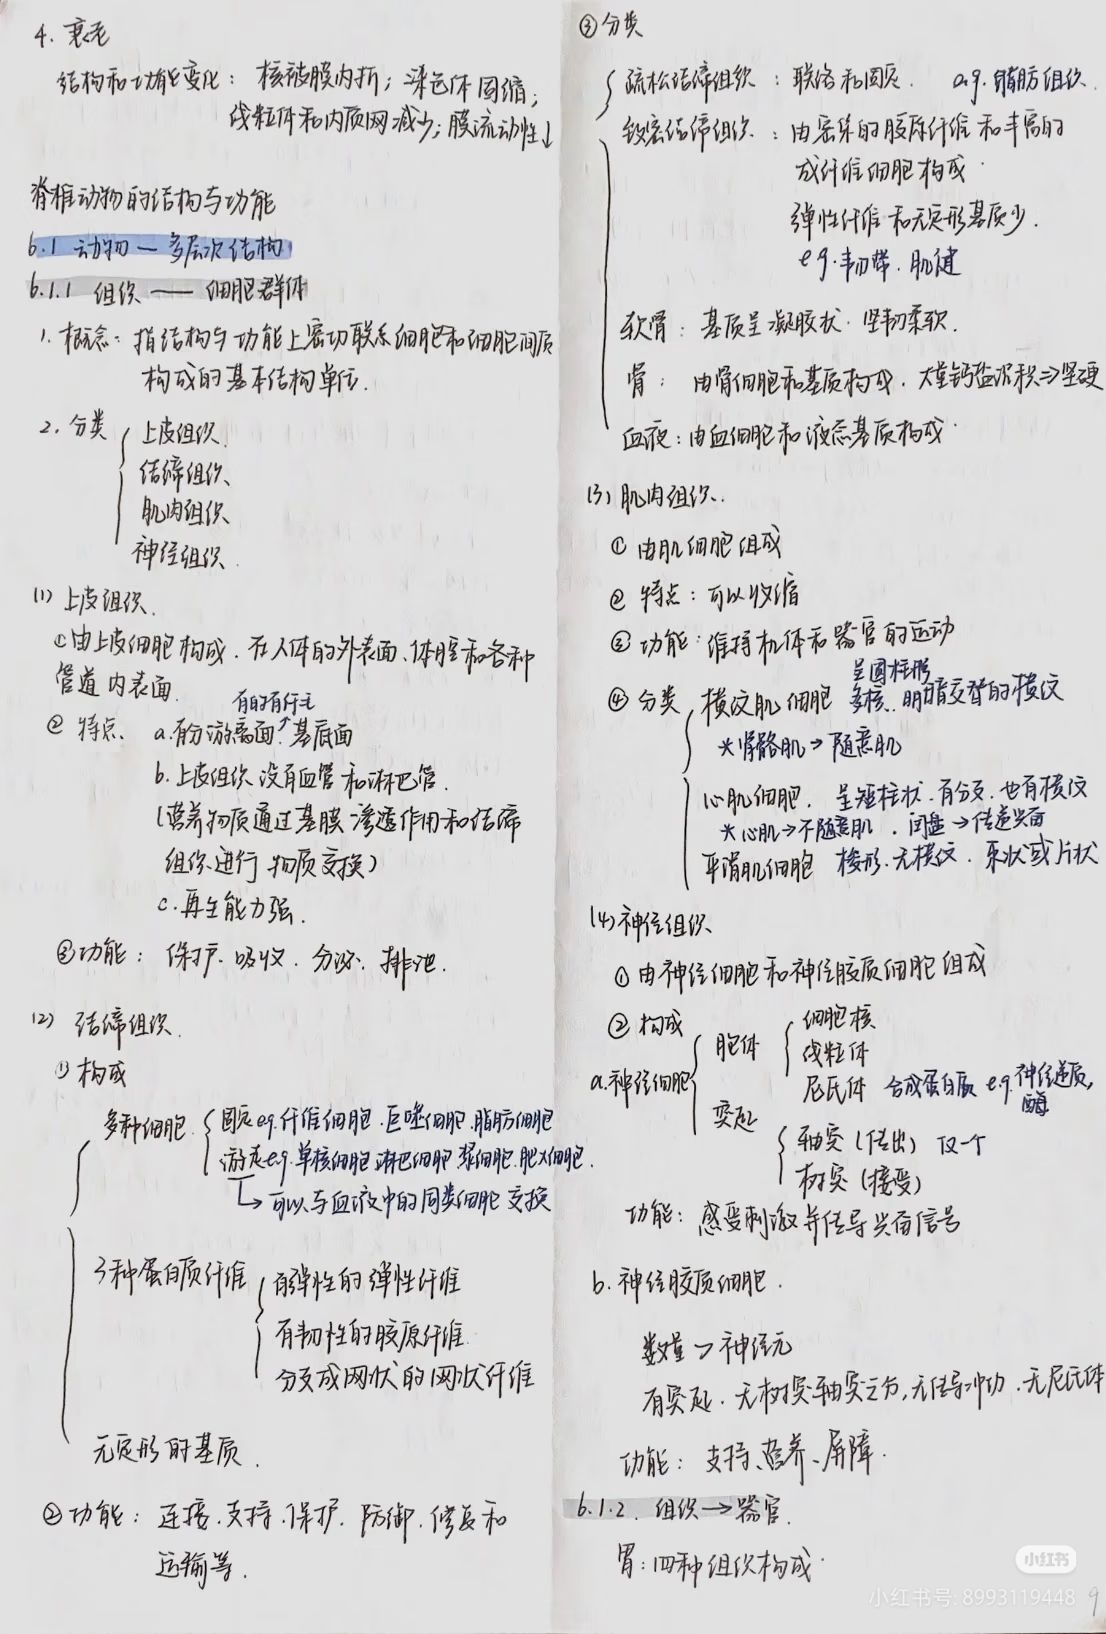 4. 衰老
结构和功能变化：核被膜内折；染色体固缩；
线粒体和内质网减少；膜流动性↓
脊椎动物的结构与功能
6.1 动物一多层次结构
6.1.1 组织——细胞群体
1. 概念：指结构与功能上密切联系细胞和细胞间质
构成的基本结构单位.
2. 分类
上皮组织.
结缔组织
肌肉组织
神经组织.
(1) 上皮组织.
①由上皮细胞构成. 在人体的外表面、体腔和各种
管道内表面.
有的有纤毛
② 特点. a.有分游离面↗基底面
b. 上皮组织没有血管和淋巴管.
(营养物质通过基膜渗透作用和结缔
组织进行物质交换)
c. 再生能力强.
③功能：保护. 吸收. 分泌. 排泄.
(2) 结缔组织.
① 构成
多种细胞
固定 eg.纤维细胞.巨噬细胞.脂肪细胞
游走 e.g.单核细胞 淋巴细胞 浆细胞.肥大细胞.
↳可以与血液中的同类细胞交换
3种蛋白质纤维
有弹性的弹性纤维
有韧性的胶原纤维
分支成网状的网状纤维
无定形的基质.
② 功能：连接.支持.保护. 防御.修复和
运输等.
③ 分类
疏松结缔组织：联络和固定. e.g. 脂肪组织.
致密结缔组织：由密集的胶原纤维和丰富的
成纤维细胞构成.
弹性纤维和无定形基质少.
e g.韧带.肌腱
软骨：基质呈凝胶状. 坚韧柔软.
骨：由骨细胞和基质构成. 大量钙盐沉积⇒坚硬
血液：由血细胞和液态基质构成.
(3) 肌肉组织.
① 由肌细胞组成
② 特点：可以收缩
③ 功能：维持机体和器官的运动
呈圆柱形
④ 分类 横纹肌细胞 多核. 明暗交替的横纹
*骨骼肌→随意肌
心肌细胞. 呈短柱状.有分支.也有横纹
*心肌→不随意肌. 闰盘→传递兴奋
平滑肌细胞 梭形.无横纹. 束状或片状
(4) 神经组织
① 由神经细胞和神经胶质细胞组成
② 构成
a.神经细胞
胞体
细胞核
线粒体
尼氏体 合成蛋白质 e.g.神经递质,
酶
突起
轴突 (传出) 仅一个
树突 (接受)
功能：感受刺激并传导兴奋信号
b. 神经胶质细胞.
数量 > 神经元
有突起. 无树突轴突之分,无传导冲动.无尼氏体
功能：支持、营养、屏障.
6.1.2. 组织→器官.
胃：四种组织构成.
小红书
小红书号: 8993119448
9